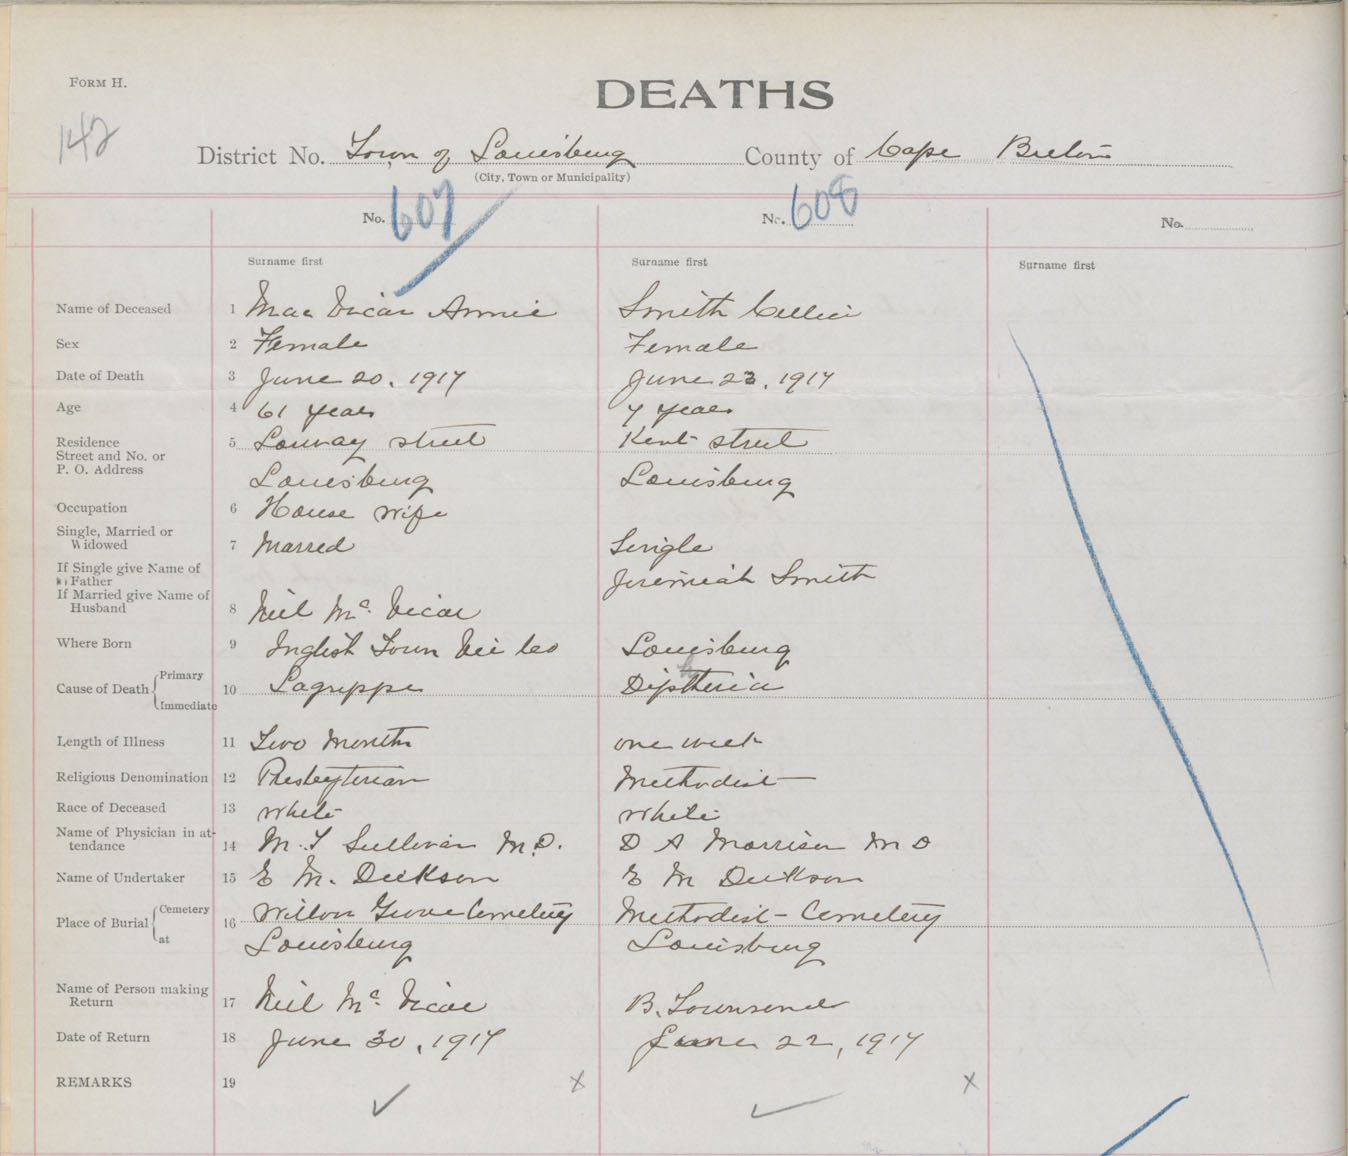 FORM H.
DEATHS
142
District No. Town of Louisburg County of Cape Breton
(City, Town or Municipality)
No. 607 No. 608 No.
Surname first Surname first Surname first
Name of Deceased 1 Mac Vicar Annie Smith
Sex 2 Female Female
Date of Death 3 June 20, 1917 June 23, 1917
Age 4 61 years 7 years
Residence 5 street Kent street
Street and No. or
P. O. Address Louisburg Louisburg
Occupation 6 House wife
Single, Married or
Widowed 7 Marred Single
If Single give Name of
Father Jeremiah Smith
If Married give Name of
Husband 8 Neil Mc Vicar
Where Born 9 Inglish Town Vic Co Louisburg
Cause of Death Primary
10 Lagrippe Diptheria h
Immediate
Length of Illness 11 Two Months one week
Religious Denomination 12 Presbyterian Methodist
Race of Deceased 13 White White
Name of Physician in at-
tendance 14 M. T Sullivan M.D. D A Morrison M D
Name of Undertaker 15 E M. Dickson E M Dickson
Place of Burial Cemetery 16 Grove Cemetery Methodist Cemetery
at Louisburg Louisburg
Name of Person making
Return 17 Neil Mc Vicar B. Townsend
Date of Return 18 June 30, 1917 June 22, 1917
REMARKS 19 x x